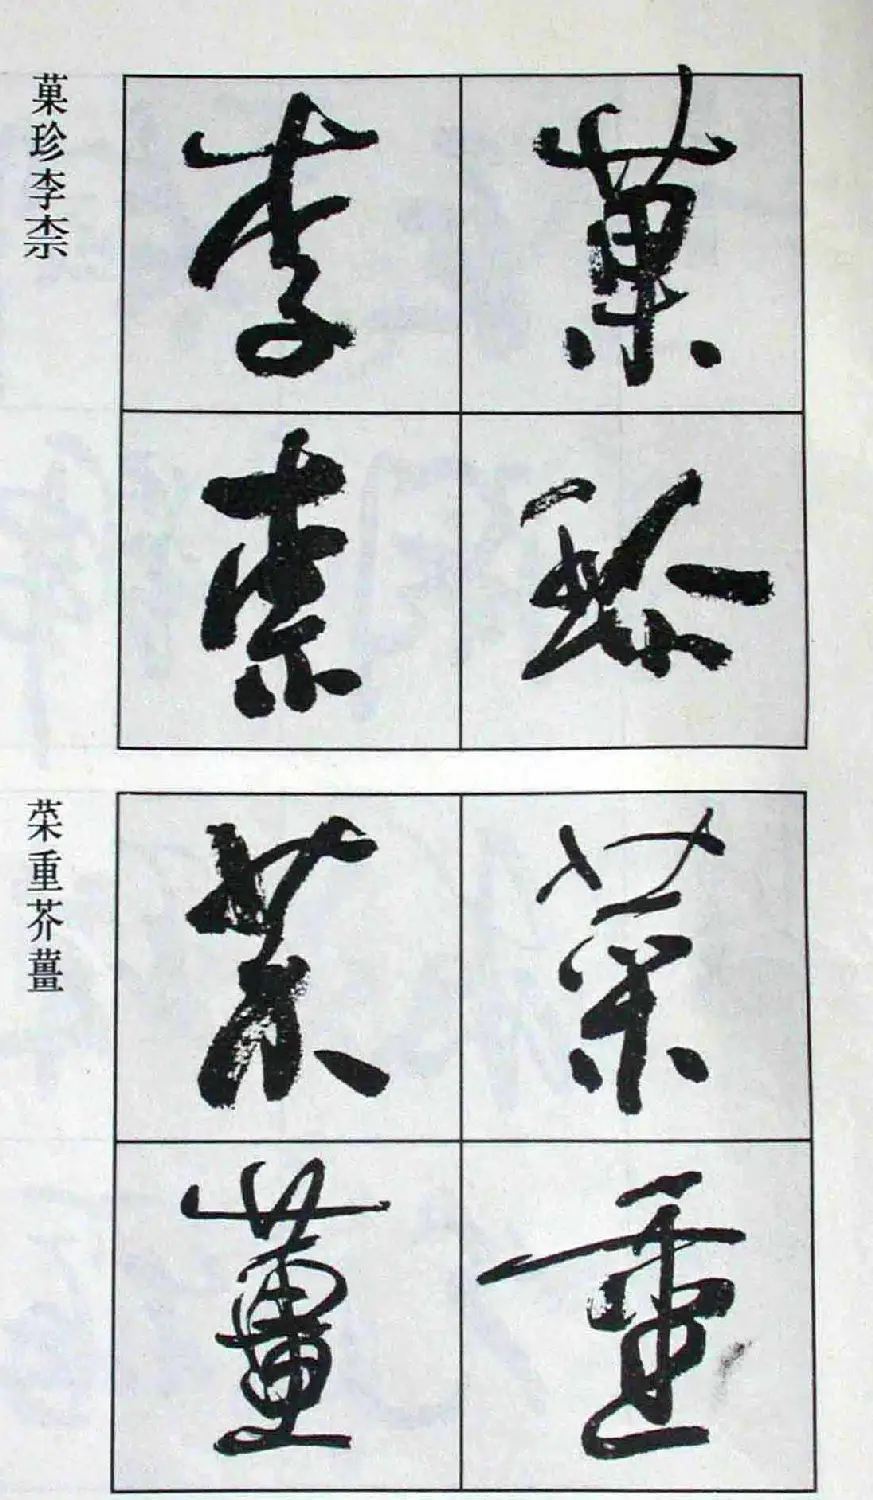 菓珍
李柰
菓珍李柰
菜重
芥薑
菜重芥薑